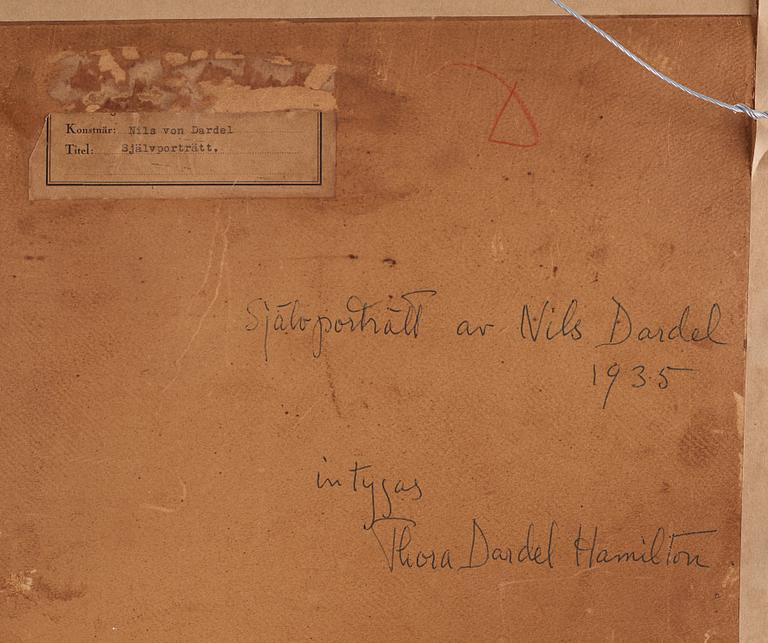 Konstnär: Nils von Dardel
Titel: Självporträtt.
Självporträtt av Nils Dardel
1935
intygas
Thora Dardel Hamilton